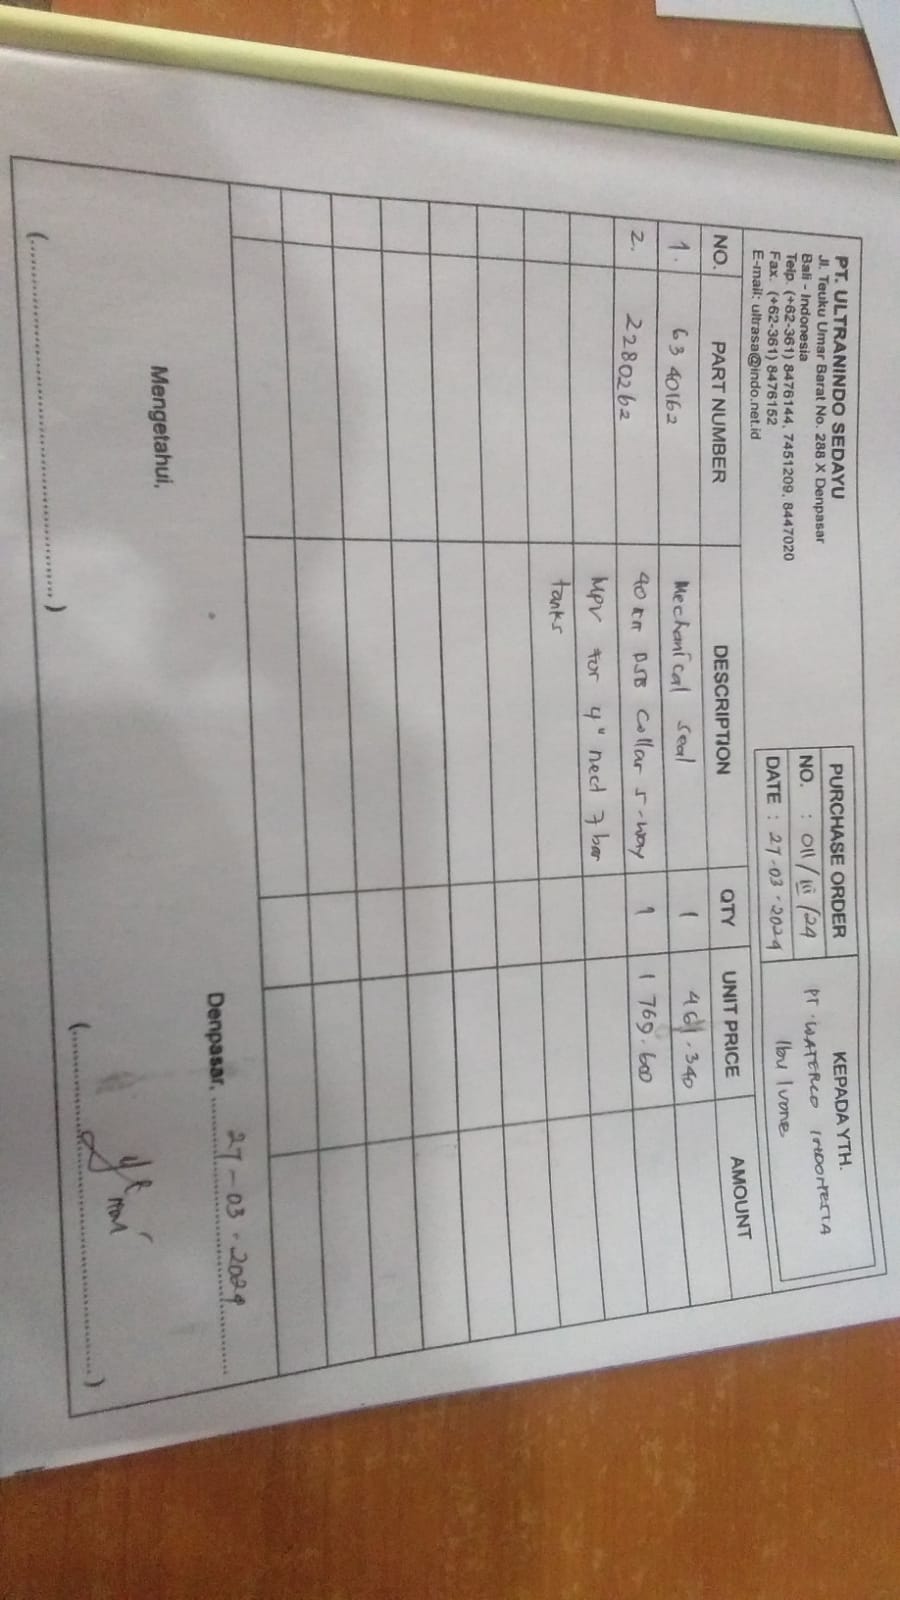 PT. ULTRANINDO SEDAYU
Jl. Teuku Umar Barat No. 288 X Denpasar
Bali - Indonesia
Telp. (+62-361) 8476144, 7451209, 8447020
Fax. (+62-361) 8476152
E-mail: ultrasa@indo.net.id
PURCHASE ORDER
NO. : 011/III/24
DATE : 27-03-2024
KEPADA YTH.
PT. WATERCO INDONESIA
Ibu Ivone
NO. PART NUMBER DESCRIPTION QTY UNIT PRICE AMOUNT
1. 6340162 Mechanical seal 1 461.340
2. 2280262 40 mm collar 5-way 1 1769.600
MPV for 4" neck 7 bar
tanks
Denpasar, 27-03-2024
Mengetahui,
(..............................)
(..............................)